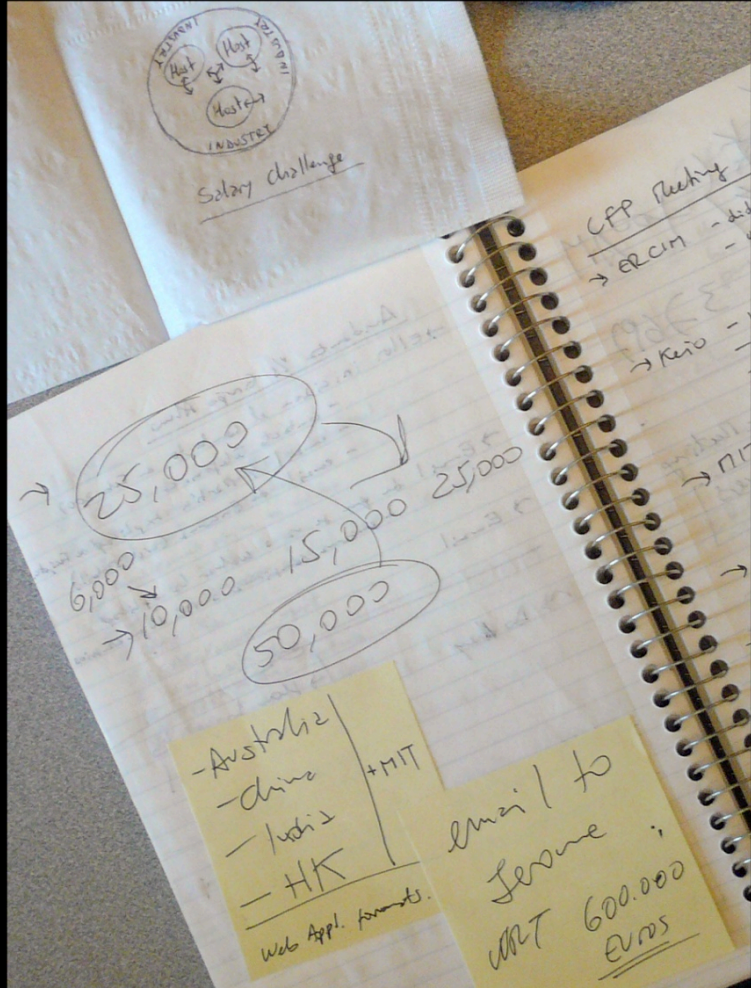 INDUSTRY
INDUSTRY
Host
Host
Host
INDUSTRY
Salary challenge
CFP Meeting
→ ERCIM -
→ Keio -
→ MIT
→
→ 25,000
25,000
15,000
6,000
→ 10,000
50,000
- Australia
- China
- India
- HK
+ MIT
Web Appl. formats.
email to
Jerome :
WRT 600.000
EUROS